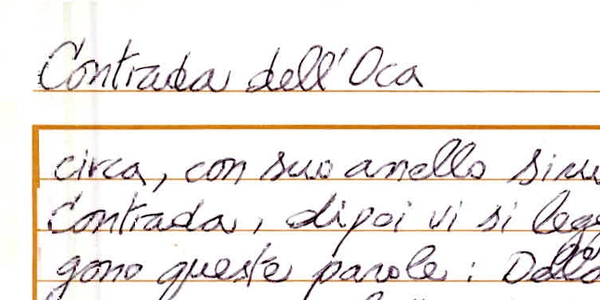 Contrada dell'Oca
circa, con suo anello
Contrada, dipoi vi si leg
gono queste parole: